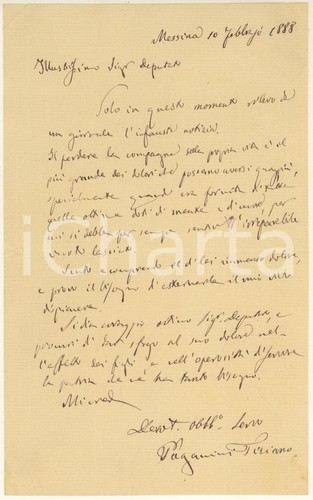 Messina 10 Febbraio 1888
Illustrissimo Sigr Deputato
Solo in questo momento rilevo da
un giornale l'infausta notizia.
Il perdere la compagna della propria vita è il
più grande dei dolori che possano aversi quaggiù,
specialmente quando era fornita di tutte
quelle ottime doti di mente e di cuore per
cui si debba per sempre sentire l'irreparabile
vuoto lasciato.
Sento e comprendo il di lei immenso dolore,
e provo il bisogno di esternarle il mio vivo
dispiacere.
Si dia coraggio ottimo Sigr Deputato, e
procuri di dare sfogo al suo dolore nel-
l'affetto dei figli e nell'operosità di servire
la patria che ne ha tanto bisogno.
Mi creda
Devot. Obbl. Servo
Paganini Tiziano
iCharta